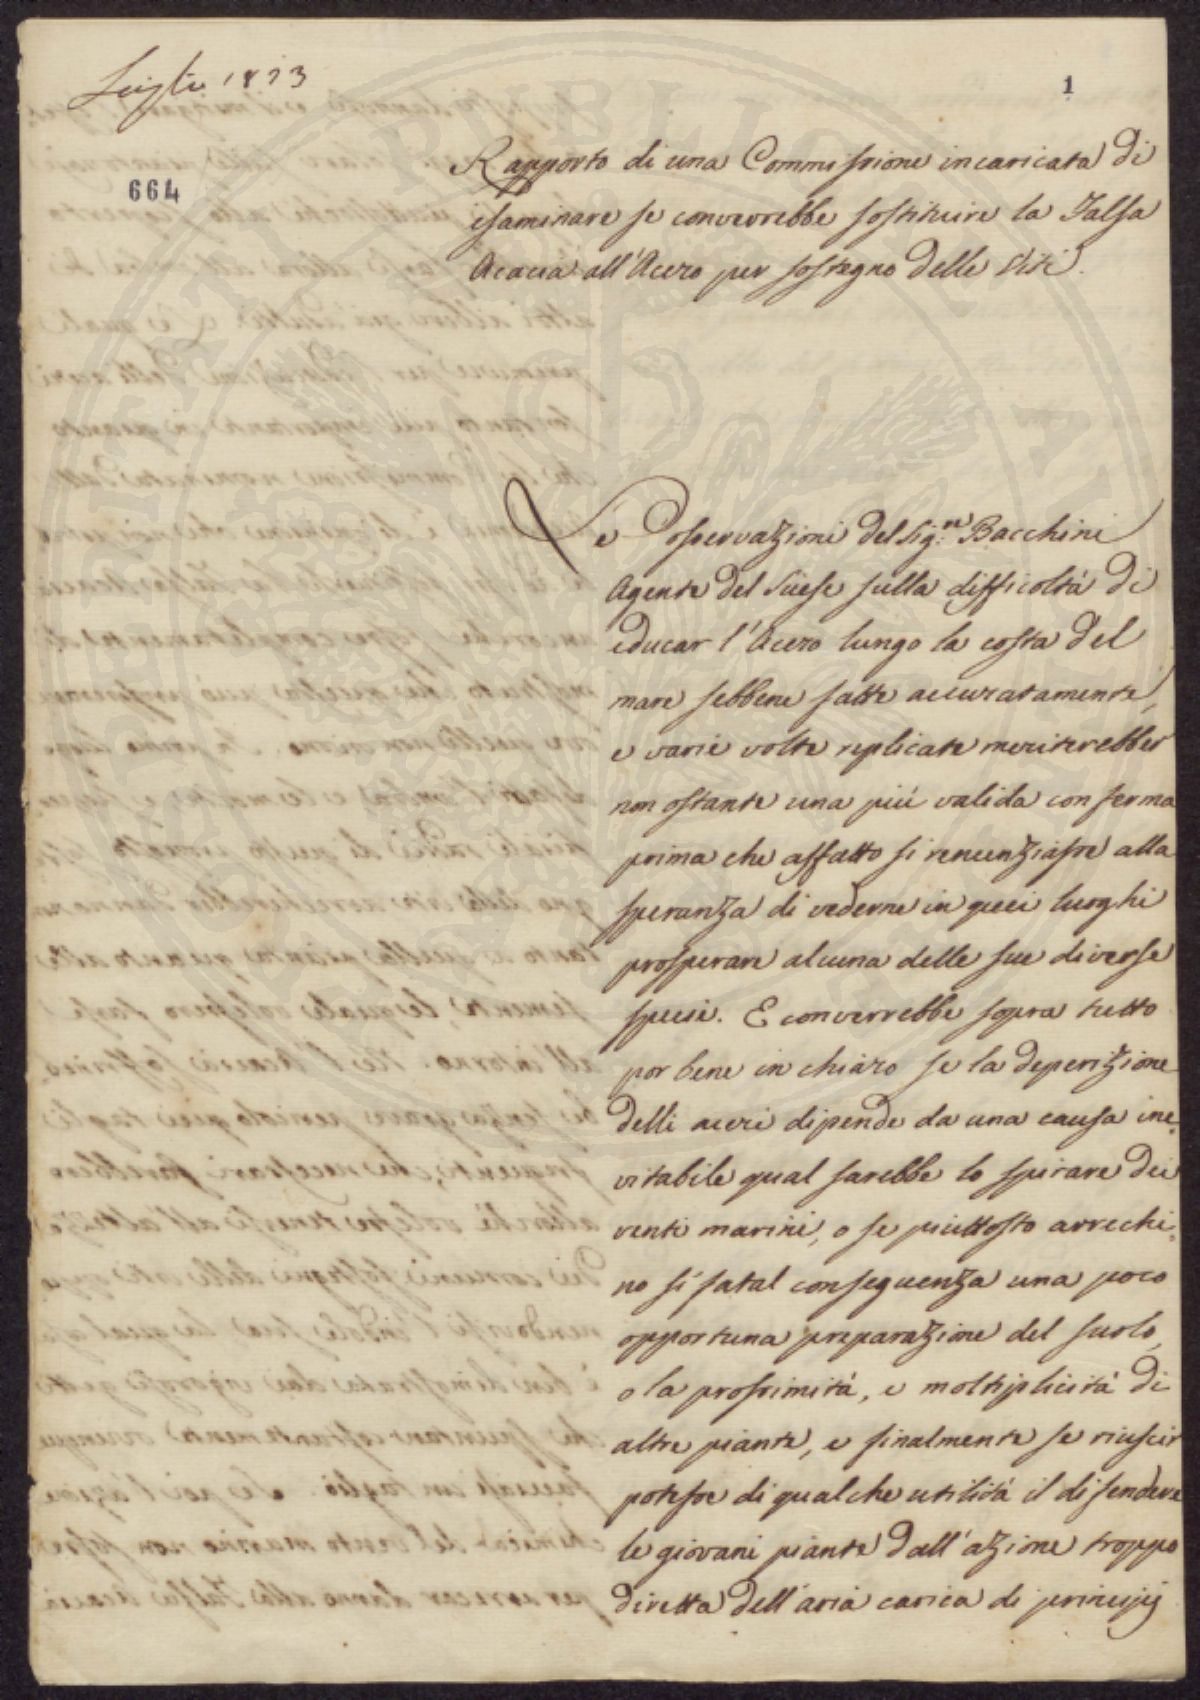 Luglio 1823
1
664
Rapporto di una Commissione incaricata di
esaminare se converrebbe sostituire la Falsa
Acacia all'Acero per sostegno delle Viti.
Le Osservazioni del Sig.re Bacchini
Agente del Suese sulla difficoltà di
educar l'Acero lungo la costa del
mare sebbene fatte accuratamente,
e varie volte replicate meriterebber
non ostante una più valida conferma
prima che affatto si renunziasse alla
speranza di vederne in quei luoghi
prosperare alcuna delle sue diverse
speci. E converrebbe sopra tutto
por bene in chiaro se la deperizione
delli aceri dipende da una causa ine=
vitabile qual sarebbe lo spirare dei
venti marini, o se piuttosto arrechi=
no sì fatal conseguenza una poco
opportuna preparazione del suolo,
o la prossimità, e moltiplicità di
altre piante, e finalmente se riuscir
potesse di qualche utilità il difendere
le giovani piante dall'azione troppo
diretta dell'aria carica di principj